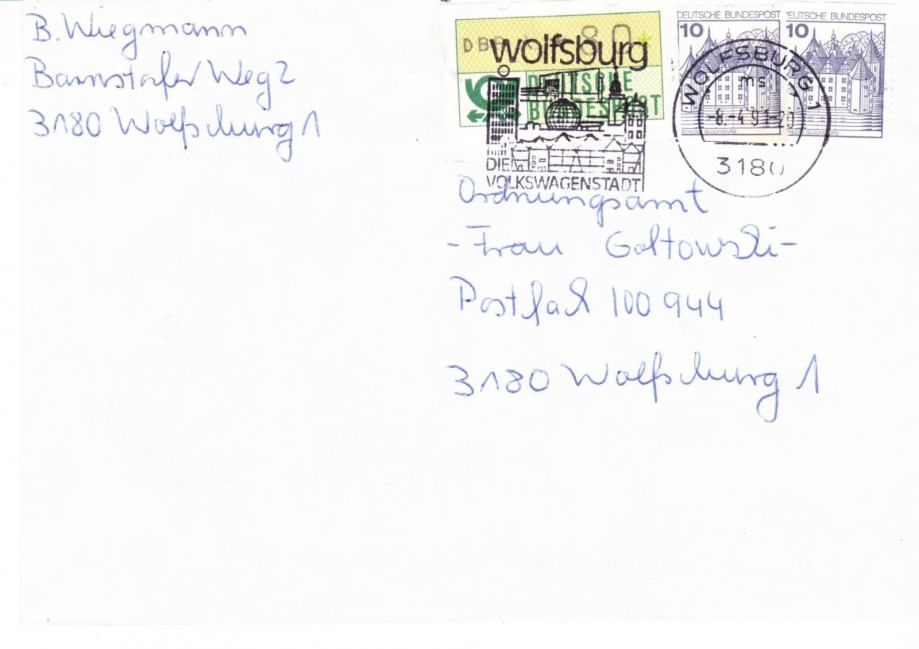 B. Wiegmann
Barnstorfer Weg 2
3180 Wolfsburg 1
DBP 80*
DEUTSCHE
BUNDESPOST
wolfsburg
DIE
VOLKSWAGENSTADT
DEUTSCHE BUNDESPOST
10
DEUTSCHE BUNDESPOST
10
WOLFSBURG 1
ms
-8.-4.91-20
3180
Ordnungsamt
-Frau Goltowski-
Postfach 100 944
3180 Wolfsburg 1